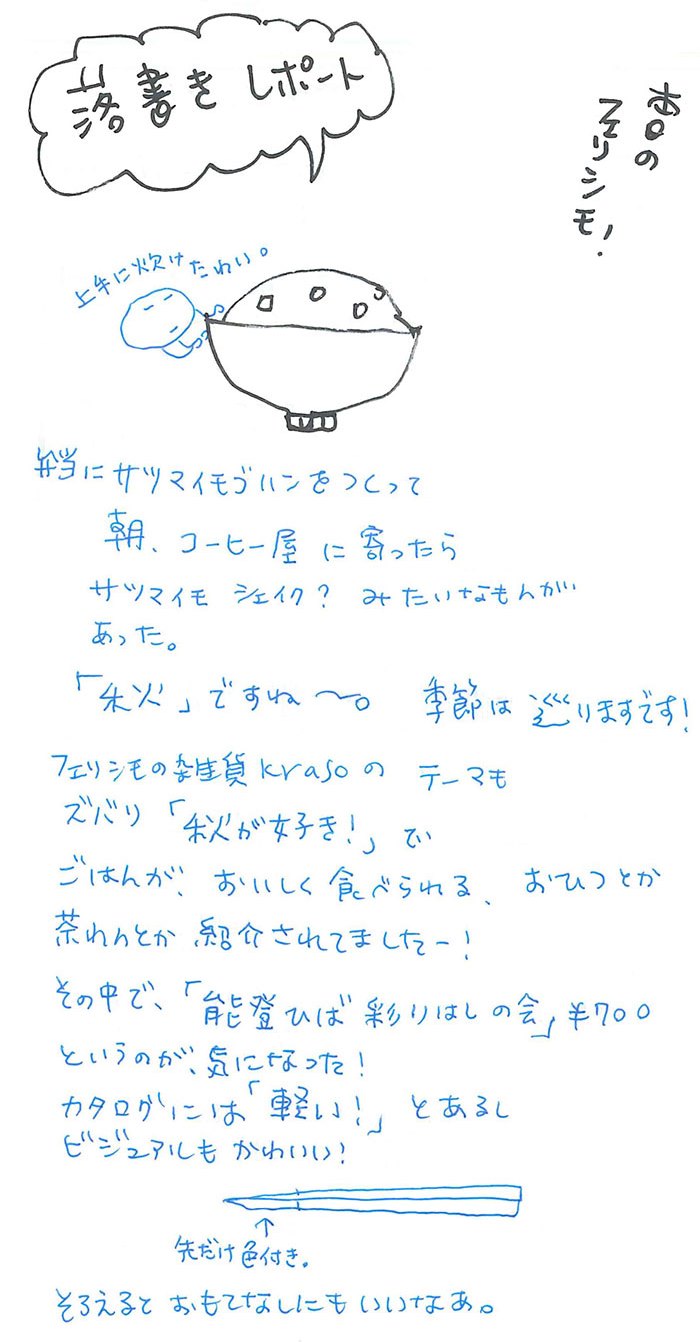 落書きレポート
春のフェリシモ!
上手に炊けたわい。
弁当にサツマイモゴハンをつくって
朝、コーヒー屋に寄ったら
サツマイモ シェイク? みたいなもんが
あった。
「秋」ですね〜。 季節は巡りますです!
フェリシモの雑貨krasoの テーマも
ズバリ「秋が好き!」で
ごはんが、おいしく食べられる、おひつとか
茶わんとか紹介されてましたー!
その中で、「能登ひば 彩りはしの会」¥700
というのが、気になった!
カタログには「軽い!」とあるし
ビジュアルもかわいい!
先だけ色付き。
そろえると おもてなしにもいいなあ。